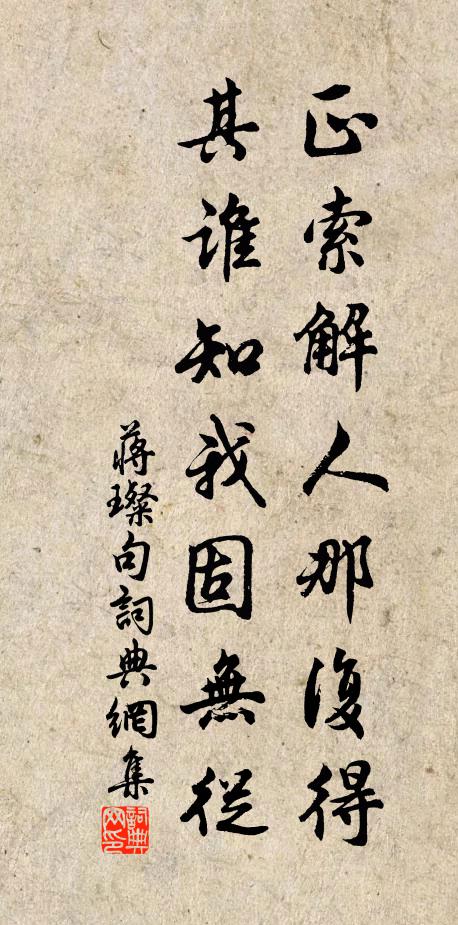 正索解人那復得
其誰知我固無從
蔣璨句詞典網集
詞典
网印